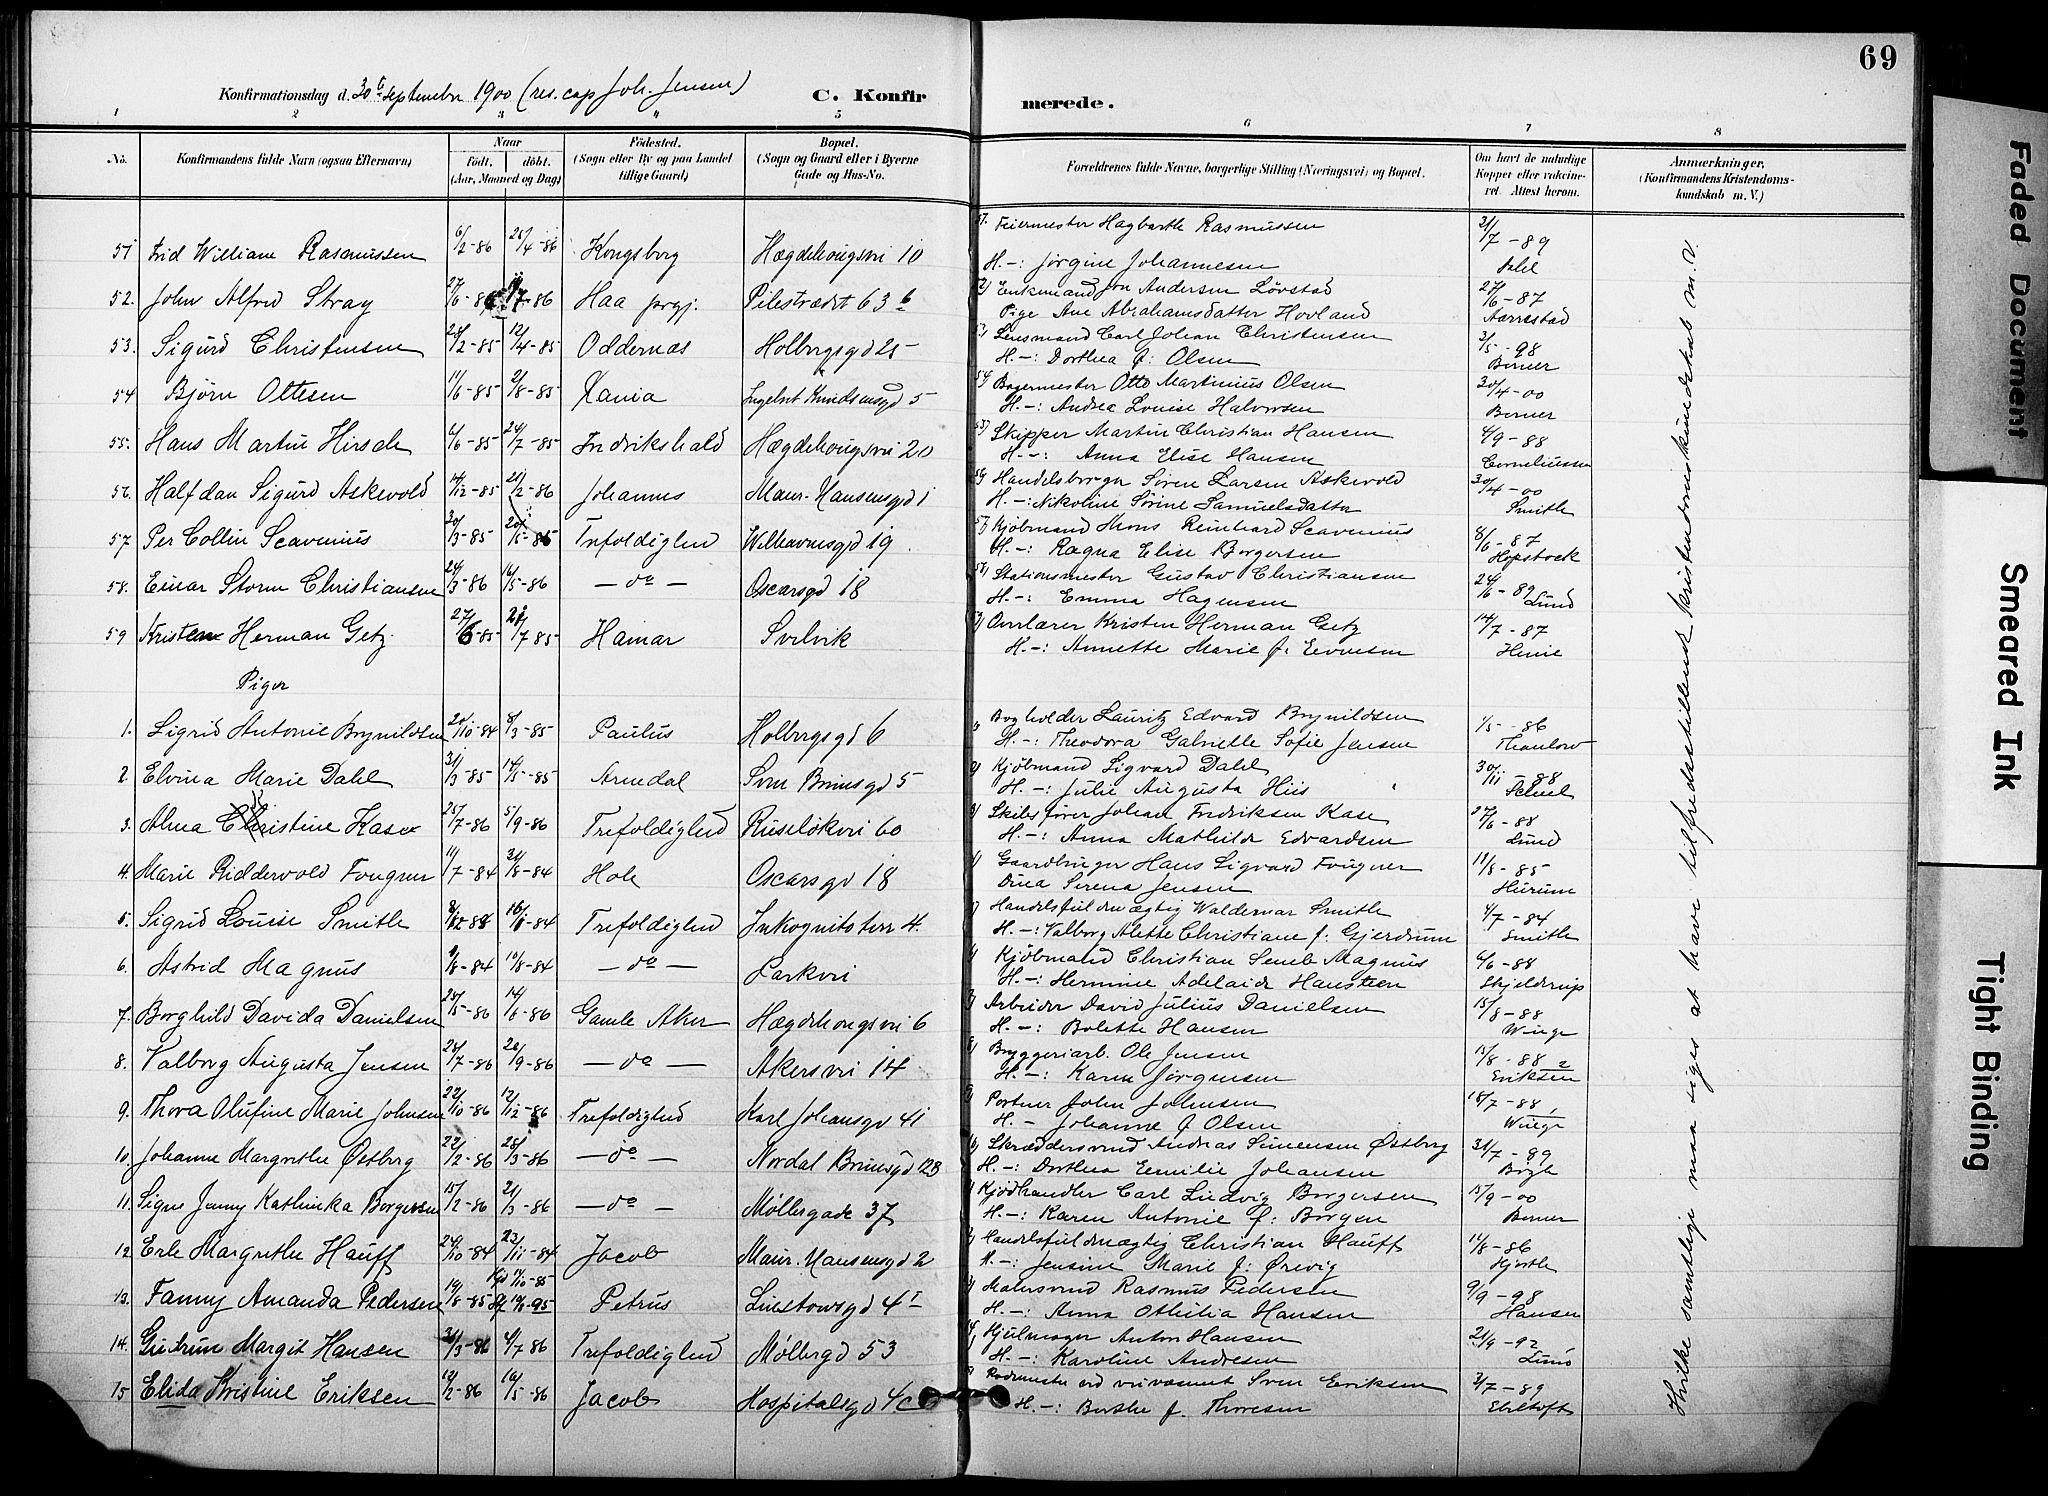 69
Konfirmationsdag d. 30te september 1900 (res. cap Joh. Jensen) C. Konfirmerede.
1 2 3 4 5 6 7 8
No. Konfirmandens fulde Navn (ogsaa Efternavn) Naar født, døbt. (Aar, Maaned og Dag) Fødested. (Sogn eller By og paa Landet tillige Gaard) Bopæl. (Sogn og Gaard eller i Byerne Gade og Hus-No. Forældrenes fulde Navne, borgerlige Stilling (Næringsvei) og Bopæl. Om havt de naturlige Kopper eller vaccineret. Attest herom. Anmærkninger. (Konfirmandens Kristendomskundskab m. V.)
51 William Rasmussen 6/2-86 25/4-86 Kongsberg Hægdehougsvei 10 Feiermester Hagbarth Rasmussen 31/7-89
H.-: Jørgine Johannesen Dahl
52. John Alfred Stray 27/6-86 Haa prgj. Pilestrædet 63 b Enkemand Jon Andersen Løvstad 27/6-87
Pige Ane Abrahamsdatter Hovland Aarrestad
53. Sigurd Christensen 28/2-85 12/4-85 Oddernæs Holbergsgd 25 Lensmand Carl Johan Christensen 3/5-98
H.-: Dorthea f: Olsen Berner
54 Bjørn Ottesen 11/6-85 2/8-85 Xania Ingebret Knudsensgd 5 Bagermester Otto Martinius Olsen 30/4-00
H.-: Andrea Louise Halvorsen Berner
55. Hans Martin Hirsch 6/6-85 24/7-85 Fredrikshald Hægdehougsvei 20 Skipper Martin Christian Hansen 4/9-88
H.-: Anna Elise Hansen Corneliussen
56. Halfdan Sigurd Askevold 14/12-85 21/2-86 Johannes Maur. Hansensgd 1 Handelsborger Søren Larsen Askevold 30/4-00
H.-: Nikoline Sørine Samuelsdatter Smith
57. Per Collin Scavenius 30/3-85 20/5-85 Trefoldighed Wilhavensgd 19 Kjøbmand Mons Reinhard Scavenius 8/6-87
H.-: Ragna Elise Borgersen Hopstock
58. Einar Storm Christiansen 24/3-86 16/5-86 - do - Oscarsgd 18 Stationsmester Gustav Christiansen 24/6-89
H.-: Emma Hagensen Lund
59 Kristen Herman Getz 27/6-85 21/7-85 Hamar Svelvik Overlærer Kristen Herman Getz 14/7-87
H.-: Annette Marie f. Evensen Henie
Piger
1. Sigrid Antonie Brynildsen 20/10-84 8/3-85 Paulus Holbergsgd 6 Bogholder Lauritz Edvard Brynildsen 1/5-86
H.-: Theodora Gabrielle Sofie Jensen Thaulow
2. Elvina Marie Dahl 31/3-85 14/5-85 Arendal Sven Bruunsgd 5 Kjøbmand Sigvard Dahl 30/11-88
H.-: Julie Augusta Hiis Scheel
3. Alma Christine Kase 25/7-86 5/9-86 Trefoldighed Ruseløkvei 60 Skibsfører Johan Fredriksen Kase 27/6-88
H.-: Anna Mathilde Edvardsen Lund
4. Marie Riddervold Fougner 11/7-84 31/8-84 Hole Oscarsgd 18 Gaardbruger Hans Sigvard Fougner 11/8-85
Dina Serena Jensen Hurum
5. Sigrid Louise Smith 16/11-84 Trefoldighed Inkognitoterr 4. Handelsfuldmægtig Waldemar Smith 4/7-84
H.-: Valborg Alette Christiane f: Gjerdrum Smith
6. Astrid Magnus 2/8-84 10/8-84 - do - Parkvei Kjøbmand Christian Semb Magnus 4/6-88
H.-: Hermine Adelaide Hansteen Skjelderup
7. Borghild Davida Danielsen 25/5-86 14/6-86 Gamle Aker Hægdehougsvei 6 Arbeider David Julius Danielsen 15/8-88
H.-: Bolette Hansen Winge
8. Valborg Augusta Jensen 28/7-86 26/9-86 - do - Akersvei 14 Bryggeriarb. Ole Jensen 15/8-88
H.-: Karen Jørgensen Eriksen
9. Thora Olufine Marie Johnsen 22/10-86 12/12-86 Trefoldighed Karl Johansgd 41 Portner John Johnsen 18/7-88
H.- Johanne f Olsen Winge
10. Johanne Margrethe Østberg 22/2-86 28/3-86 - do - Nordal Brunsgd 12B Skræddersvend Andreas Simensen Østberg 31/7-89
H.-: Dorthea Emilie Johansen Bøgh
11. Signe Jenny Kathinka Borgersen 15/2-86 21/3-86 - do - Møllergade 37 Kjødhandler Carl Ludvig Borgersen 15/9-00
H.-: Karen Antonie f: Borgen Berner
12 Erle Margrethe Hauff 24/10-84 23/11-84 Jacob Maur. Hansensgd 2 Handelsfuldmægtig Christian Hauff 11/8-86
H.-: Jensine Marie f: Ørevig Hjorth
13. Fanny Amanda Pedersen 19/8-85 Petrus Linstowsgd 4 I Malersvend Rasmus Pedersen 9/9-98
H.-: Anna Othilia Hansen Hansen
14. Gudrun Margit Hansen 31/3-86 4/7 86 Trefoldighed Møllergd 53 Hjulmager Anton Hansen 21/9-92
H.-: Karoline Andresen Lund
15 Elida Kristine Eriksen 12/2-86 16/5-86 Jacob Hospitalsgd 4c Rodemester ved veivæsenet Sven Eriksen 3/7-89
H.-: Berthe f. Thoresen Ebeltoft
Hvilke samtlige maa siges at have tilfredsstillende kristendomskundskab m.V.
Faded Document
Smeared Ink
Tight Binding